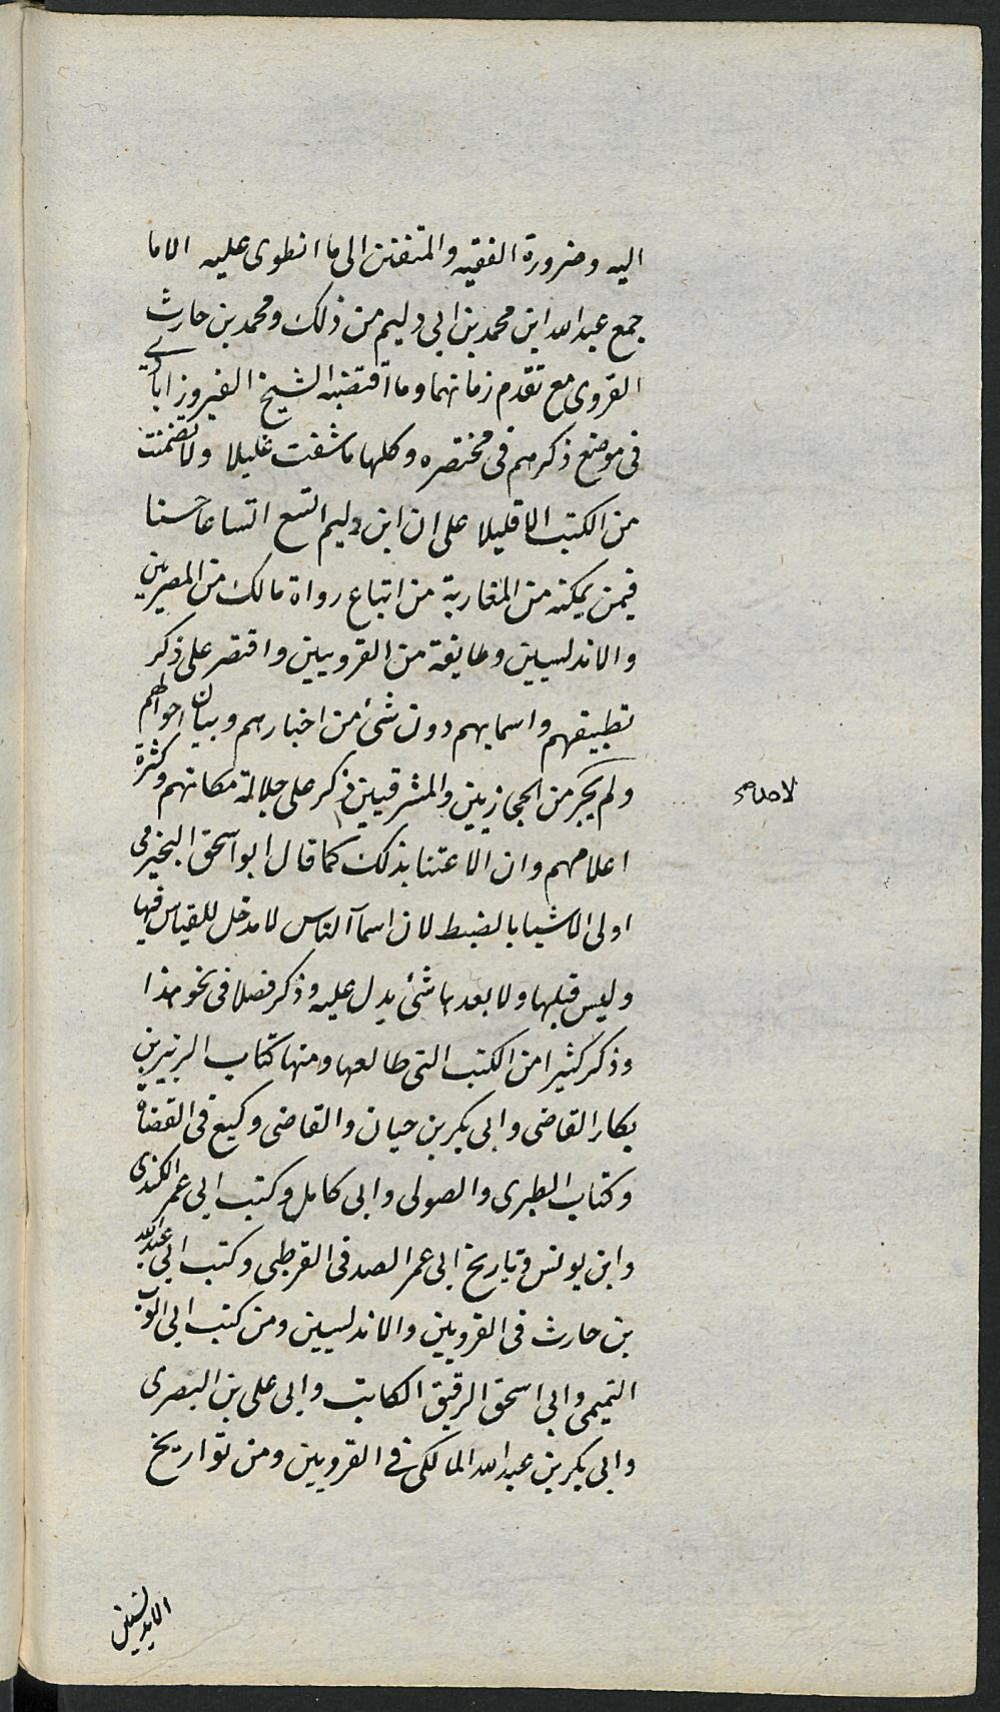 اليه وضرورة الفقيه والمتفنن الى ما انطوى عليه الاما
جمع عبدالله ابن محمد بن ابى دليم من ذلك ومحمد بن حارث
القروى مع تقدم زمانهما وما اقتضبه الشيخ الفيروز ابادى
فى موضع ذكرهم فى مختصره وكلها ما شفت غليلا ولا تضمنت
من الكتب الا قليلا على ان ابن دليم اتسع اتساعا حسنا
فيمن يمكنه من المغاربة من اتباع رواة مالك من المصريين
والاندلسيين وطايفة من القرويين واقتصر على ذكر
تطبيقهم واسمايهم دون شئ من اخبارهم وبيان احوالهم
ولم يجر من الحجازيين والمشرقيين ذكر على جلالة مكانهم وكثرة
اعلامهم وان الاعتنا بذلك كما قال ابو اسحق النجيرمى
اولى الاشيا بالضبط لان اسمآ الناس لا مدخل للقياس فيها
وليس قبلها ولا بعدها شئ يدل عليه وذكر فصلا فى نحو هذا
وذكر كثيرا من الكتب التى طالعها ومنها كتاب الزبير بن
بكار القاضى وابى بكر بن حيان والقاضى وكيع فى القضاة
وكتاب الطبرى والصولى وابى كامل وكتب ابى عمر الكندى
وابن يونس وتاريخ ابى عمر الصدفى القرطبى وكتب ابى عبدالله
بن حارث فى القرويين والاندلسيين ومن كتب ابى العرب
التميمى وابى اسحق الرقيق الكاتب وابى على بن البصرى
وابى بكر بن عبدالله المالكى فى القرويين ومن تواريخ
الاندلسيين